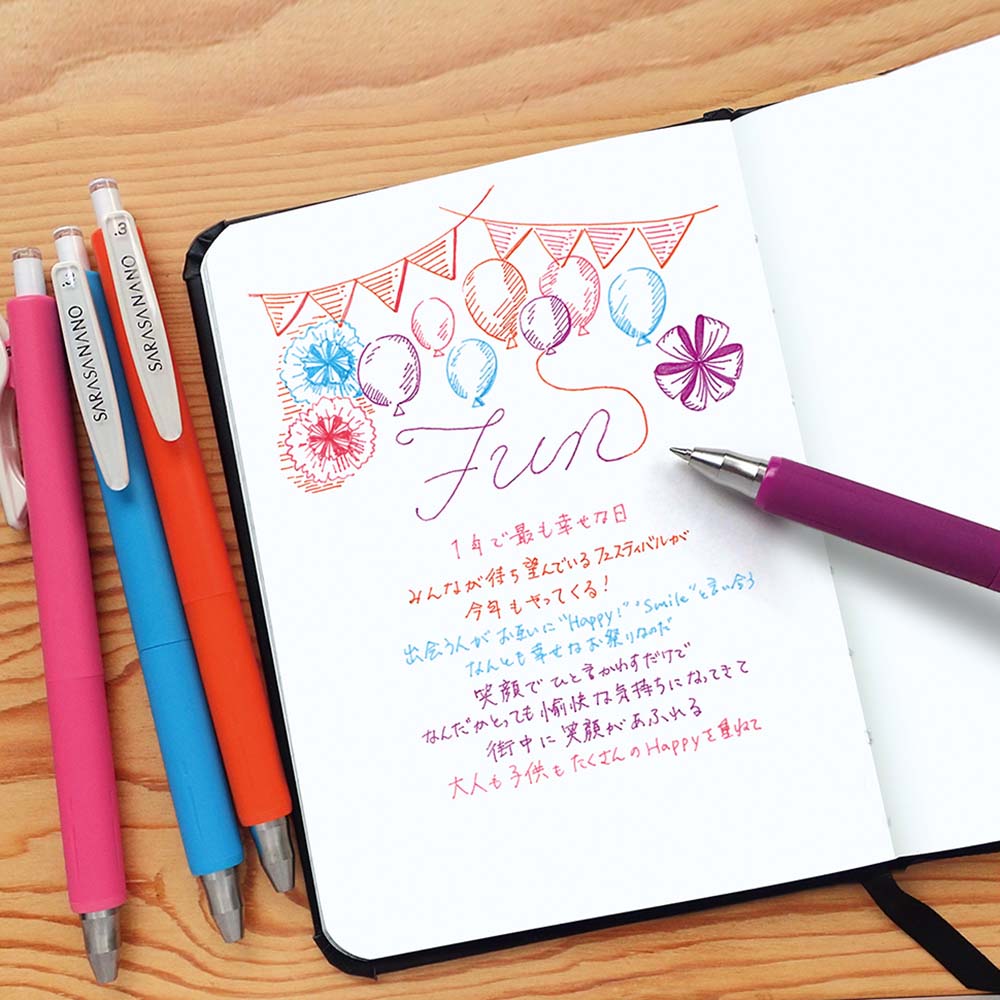 SARASANANO
.3
SARASANANO
Fun
1年で最も幸せな日
みんなが待ち望んでいるフェスティバルが
今年もやってくる!
出会う人がお互いに"Happy!""Smile"と言い合う
なんとも幸せなお祭りなのだ
笑顔でひと言かわすだけで
なんだかとっても愉快な気持ちになってきて
街中に笑顔があふれる
大人も子供もたくさんのHappyを重ねて